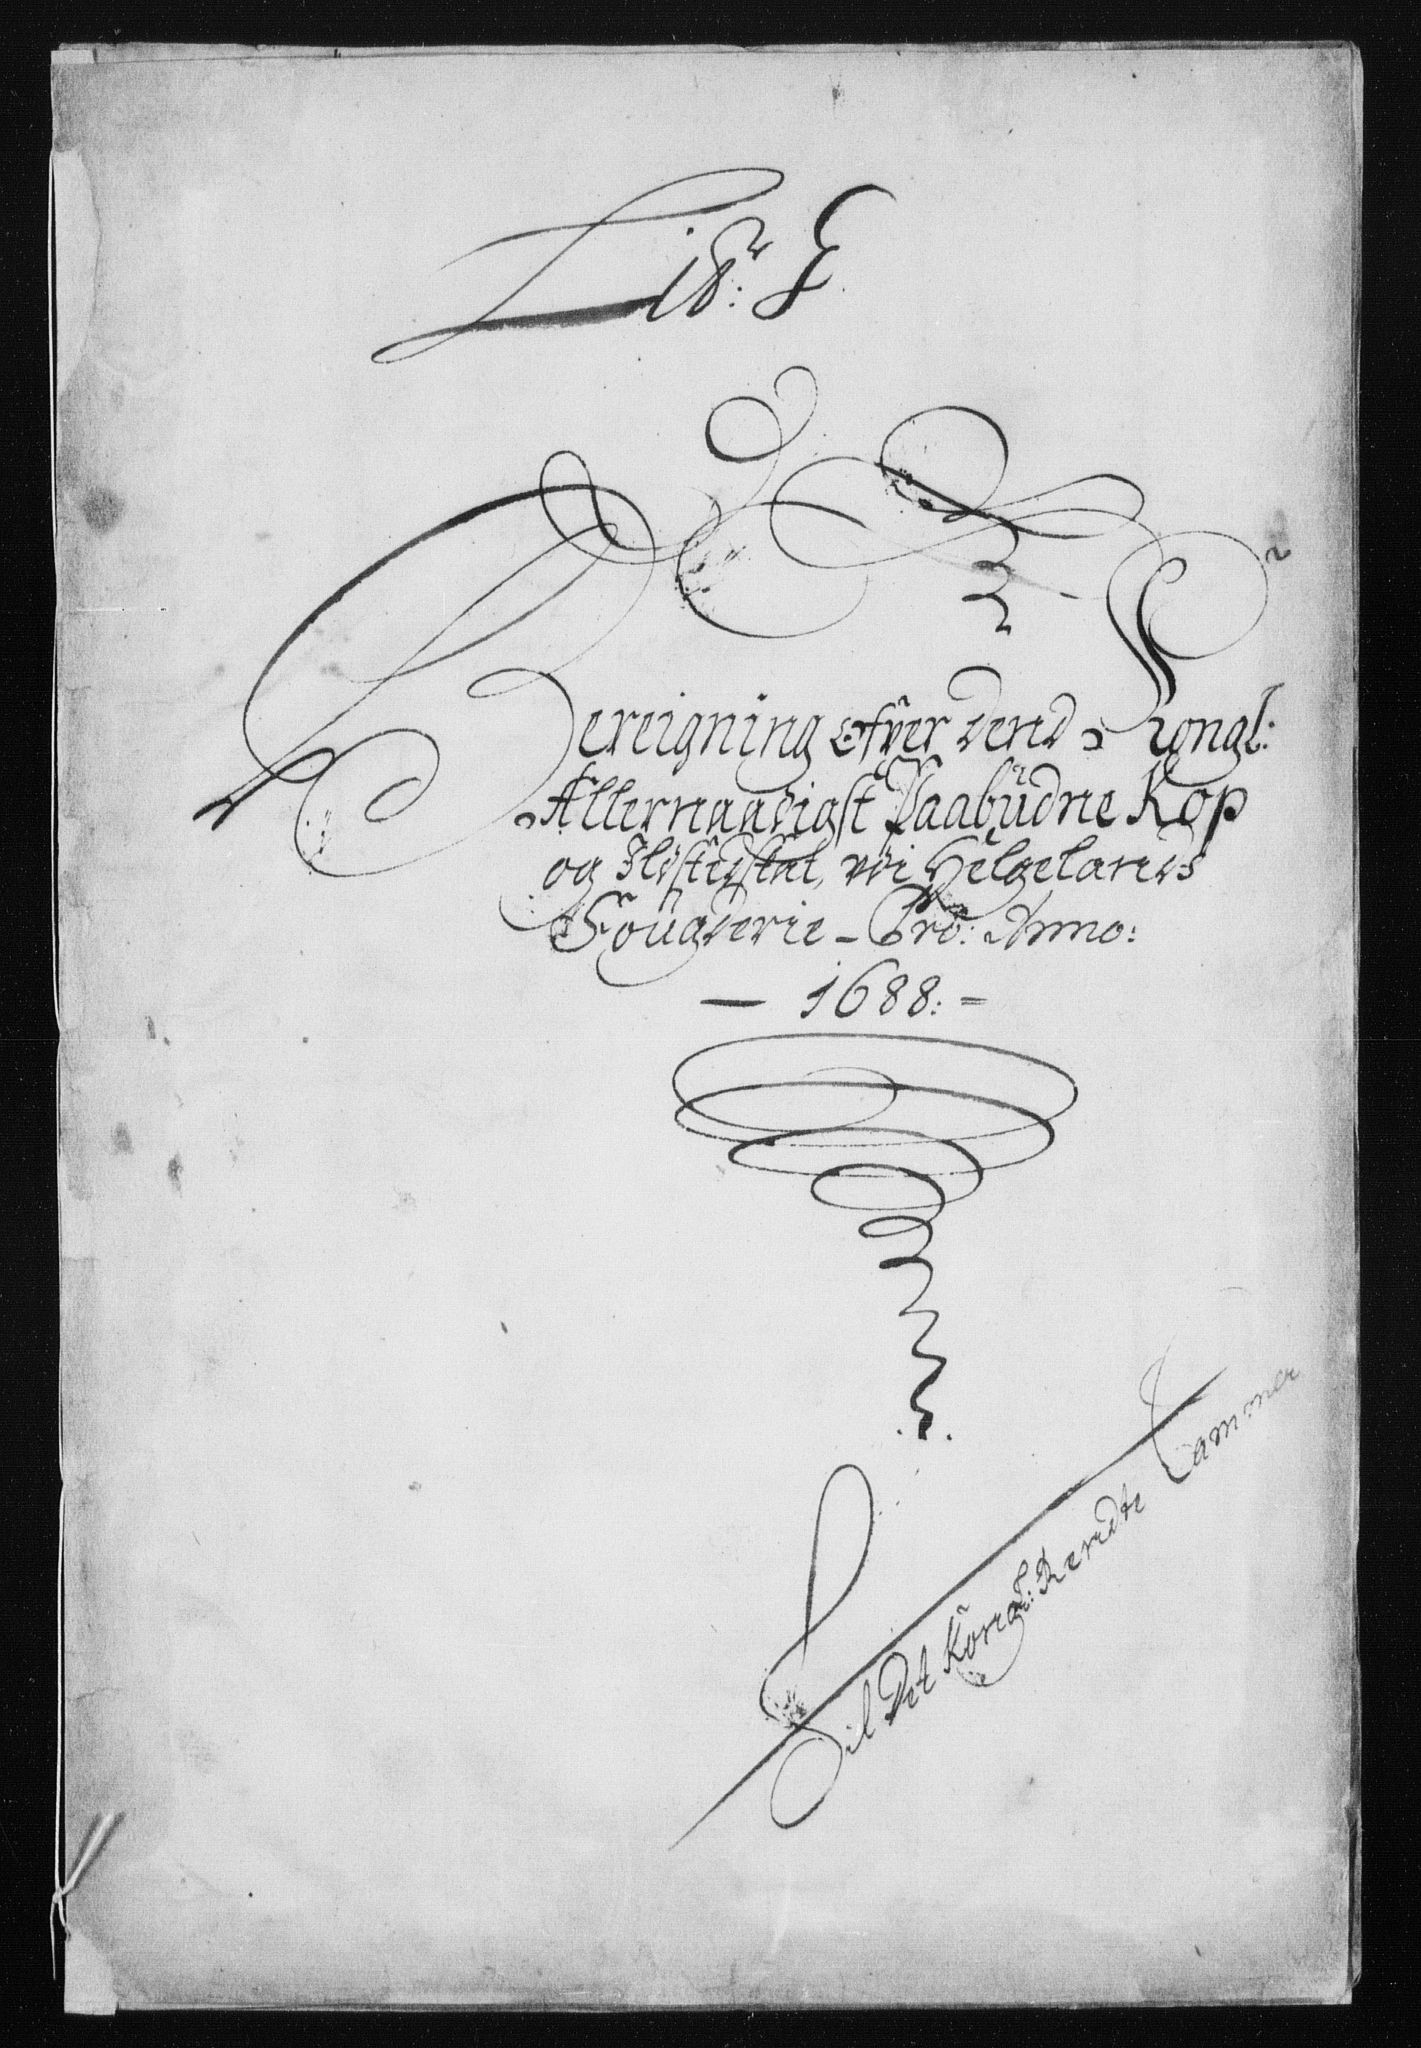 Litr: E.
Bereigning ofver dend Kongl:
Allernaadigst Paabudne Kop
og Ildstedskat, vdi Helgelands
Fougderie - Pro: Anno:
— 1688: =
Til Det Kongl: Rendte Cammer